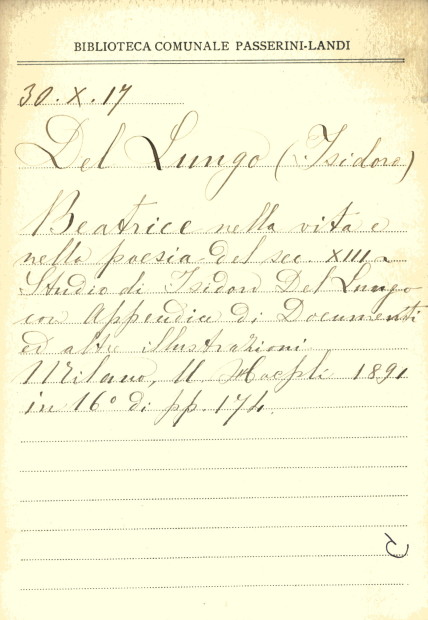 BIBLIOTECA COMUNALE PASSERINI-LANDI
30.X.17
Del Lungo (Isidoro)
Beatrice nella vita e
nella poesia del sec. XIII
Studio di Isidoro Del Lungo
con Appendice di Documenti
ed altre illustrazioni
Milano, U Hoepli 1891
in 16° di pp. 174.